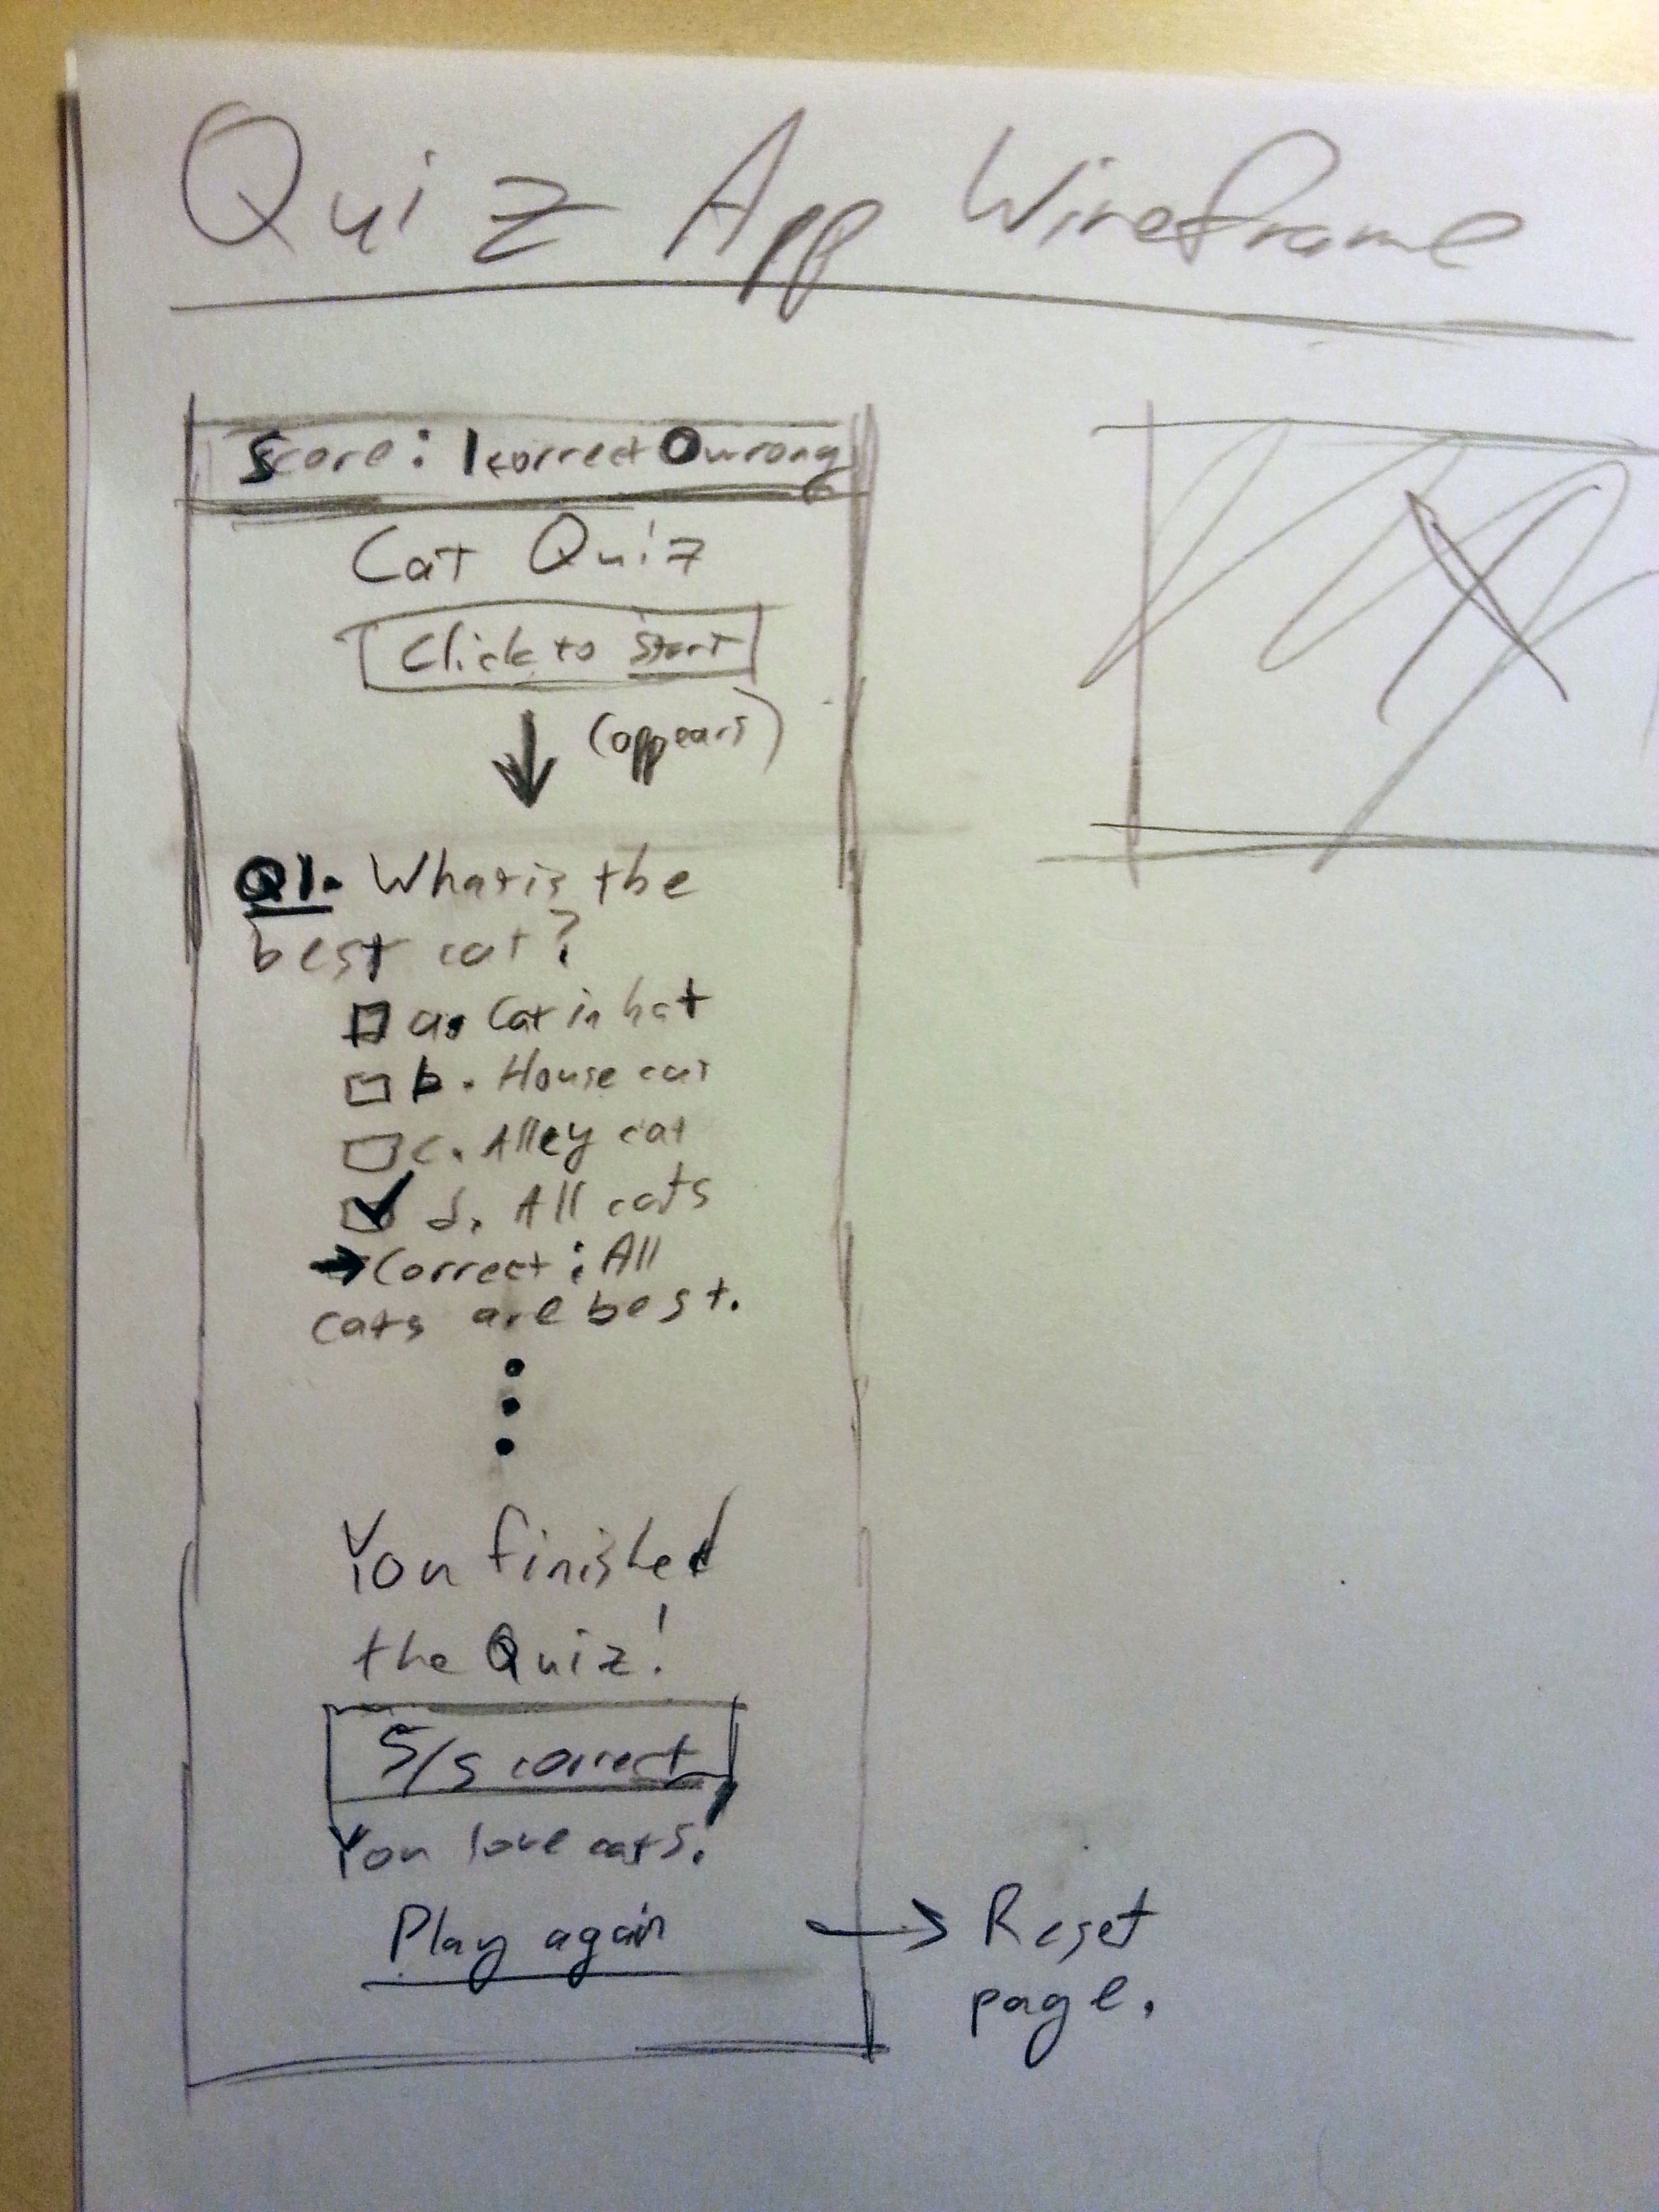 Quiz App Wireframe
Score: 1 correct 0 wrong
Cat Quiz
Click to start
(appears)
Q1. What is the
best cat?
a. Cat in hat
b. House cat
c. Alley cat
d. All cats
Correct: All
cats are best.
You finished
the Quiz!
5/5 correct
You love cats!
Play again
Reset
page.